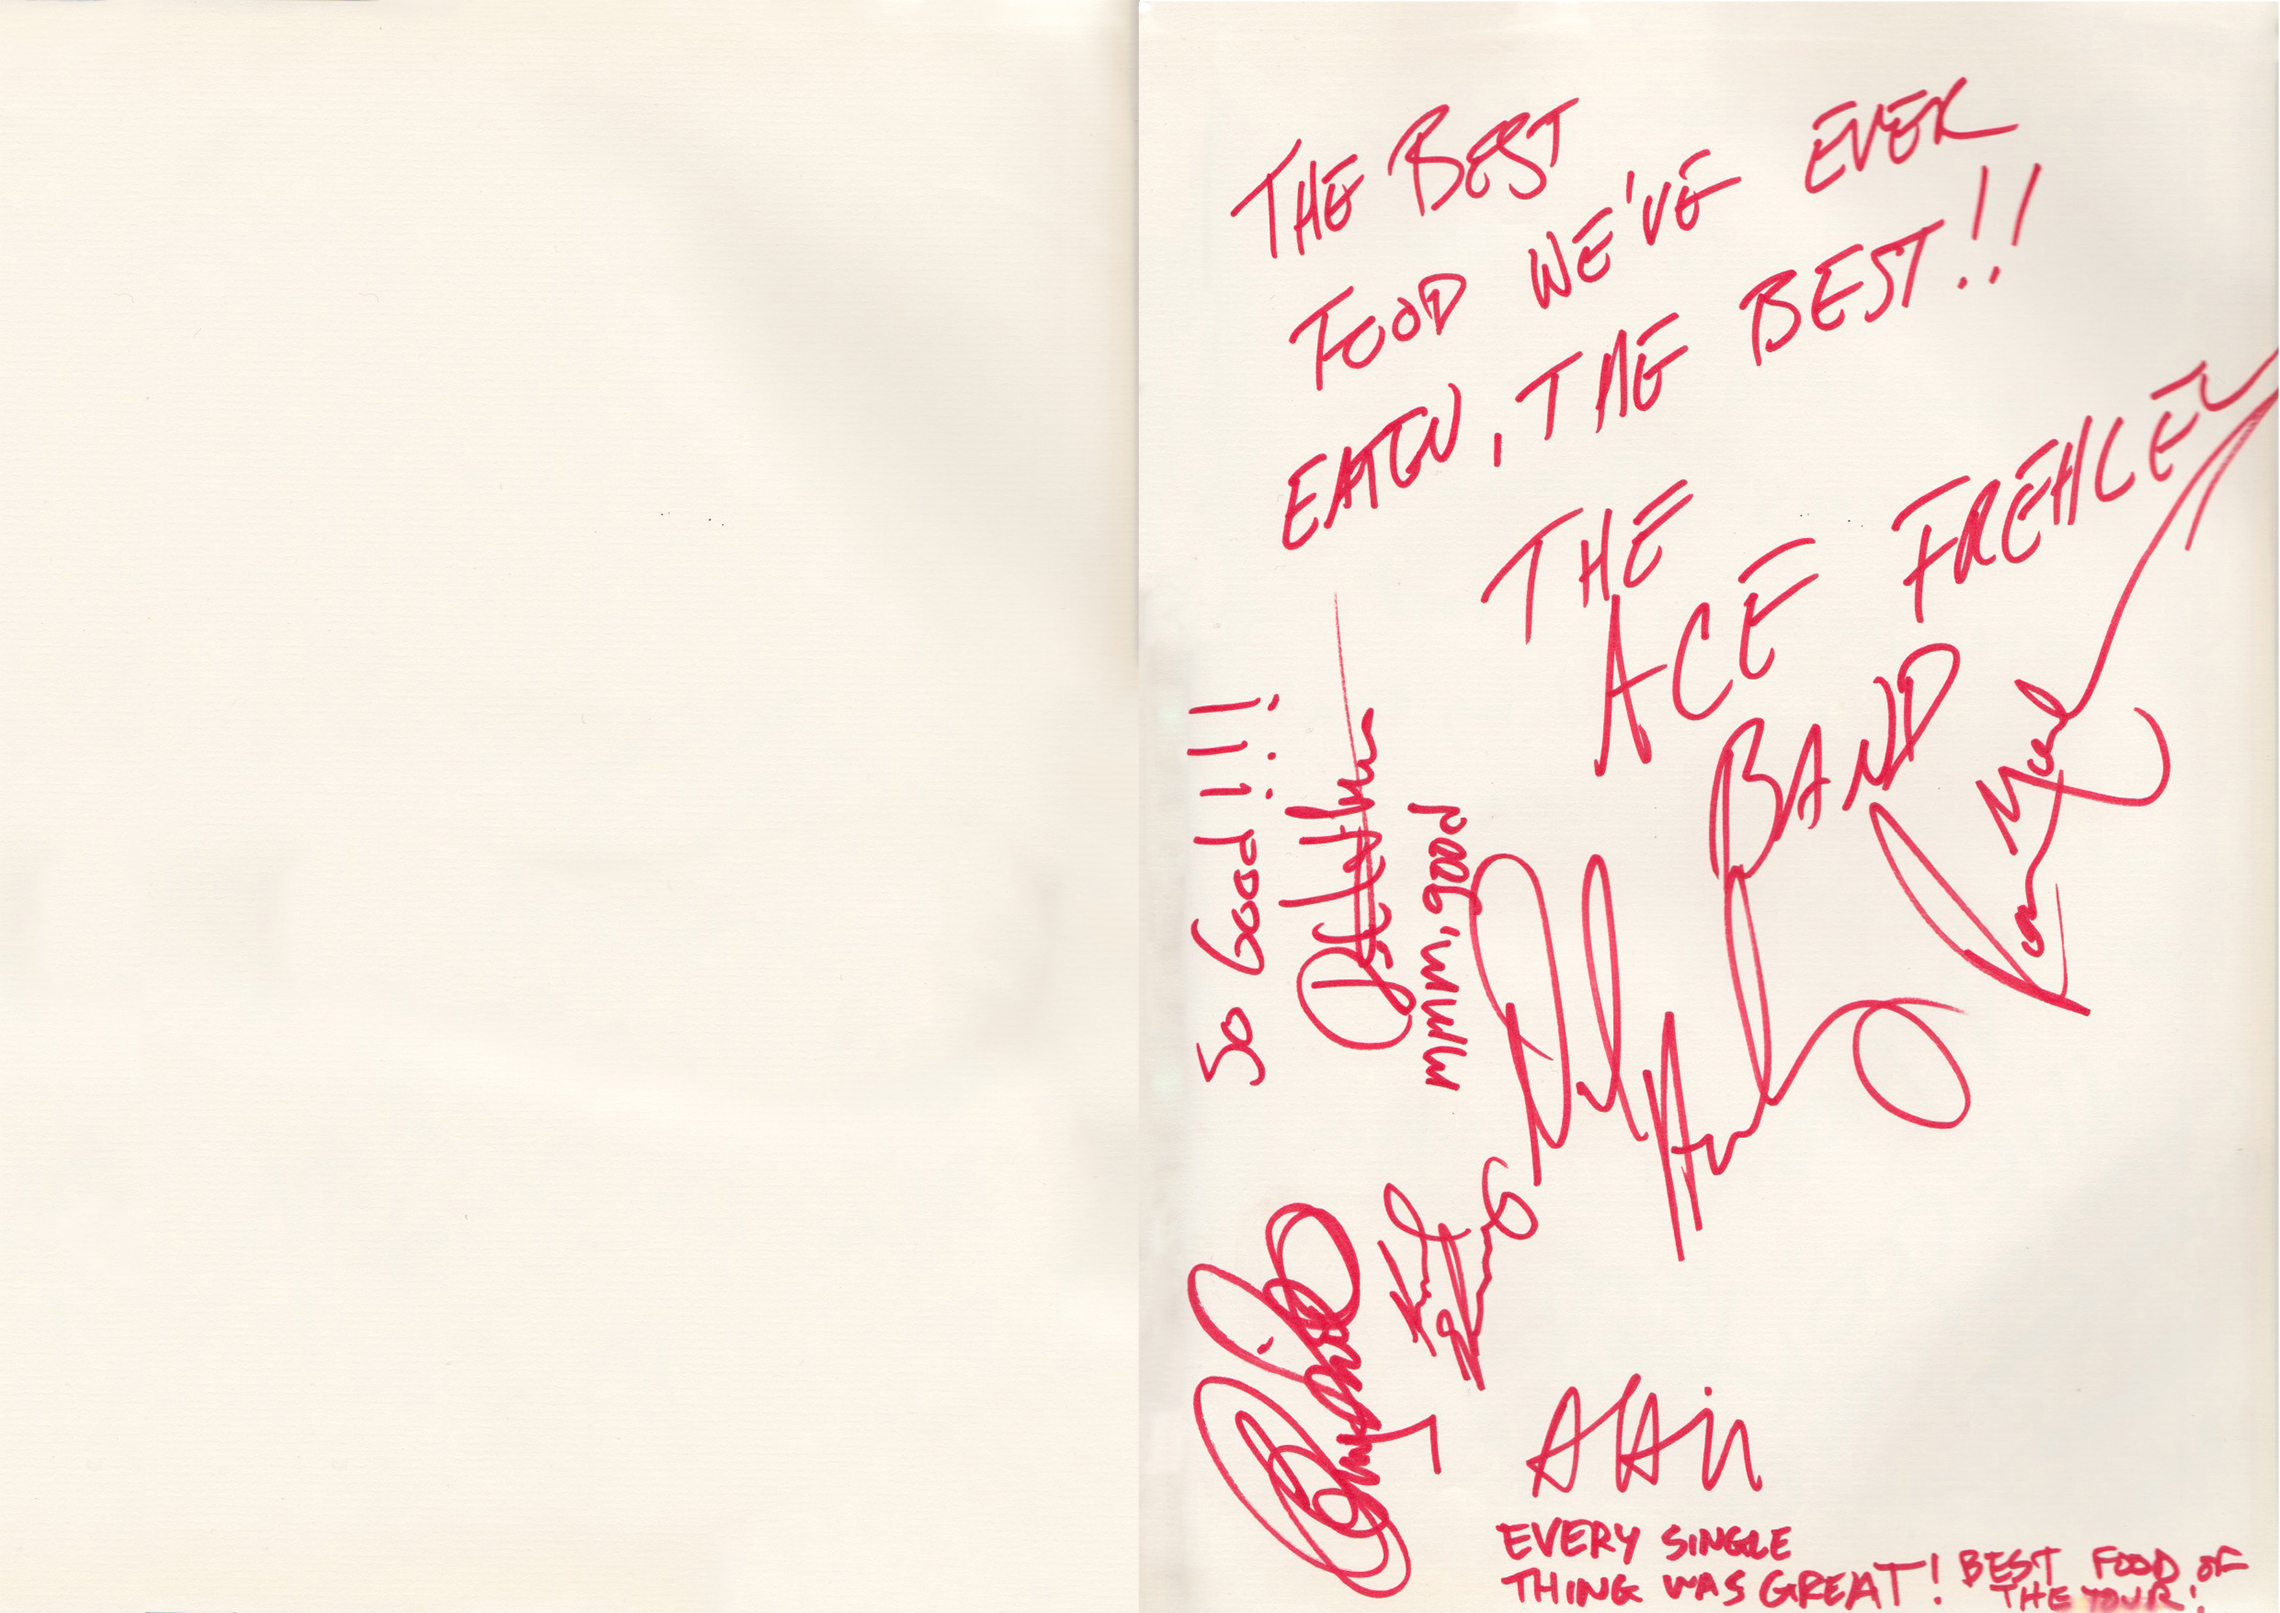 THE BEST
FOOD WE'VE EVER
EATEN, THE BEST!!
THE
ACE FREHLEY
BAND
So Good!!!
mmm, good
Alain
EVERY SINGLE
THING WAS GREAT! BEST FOOD OF
THE TOUR!